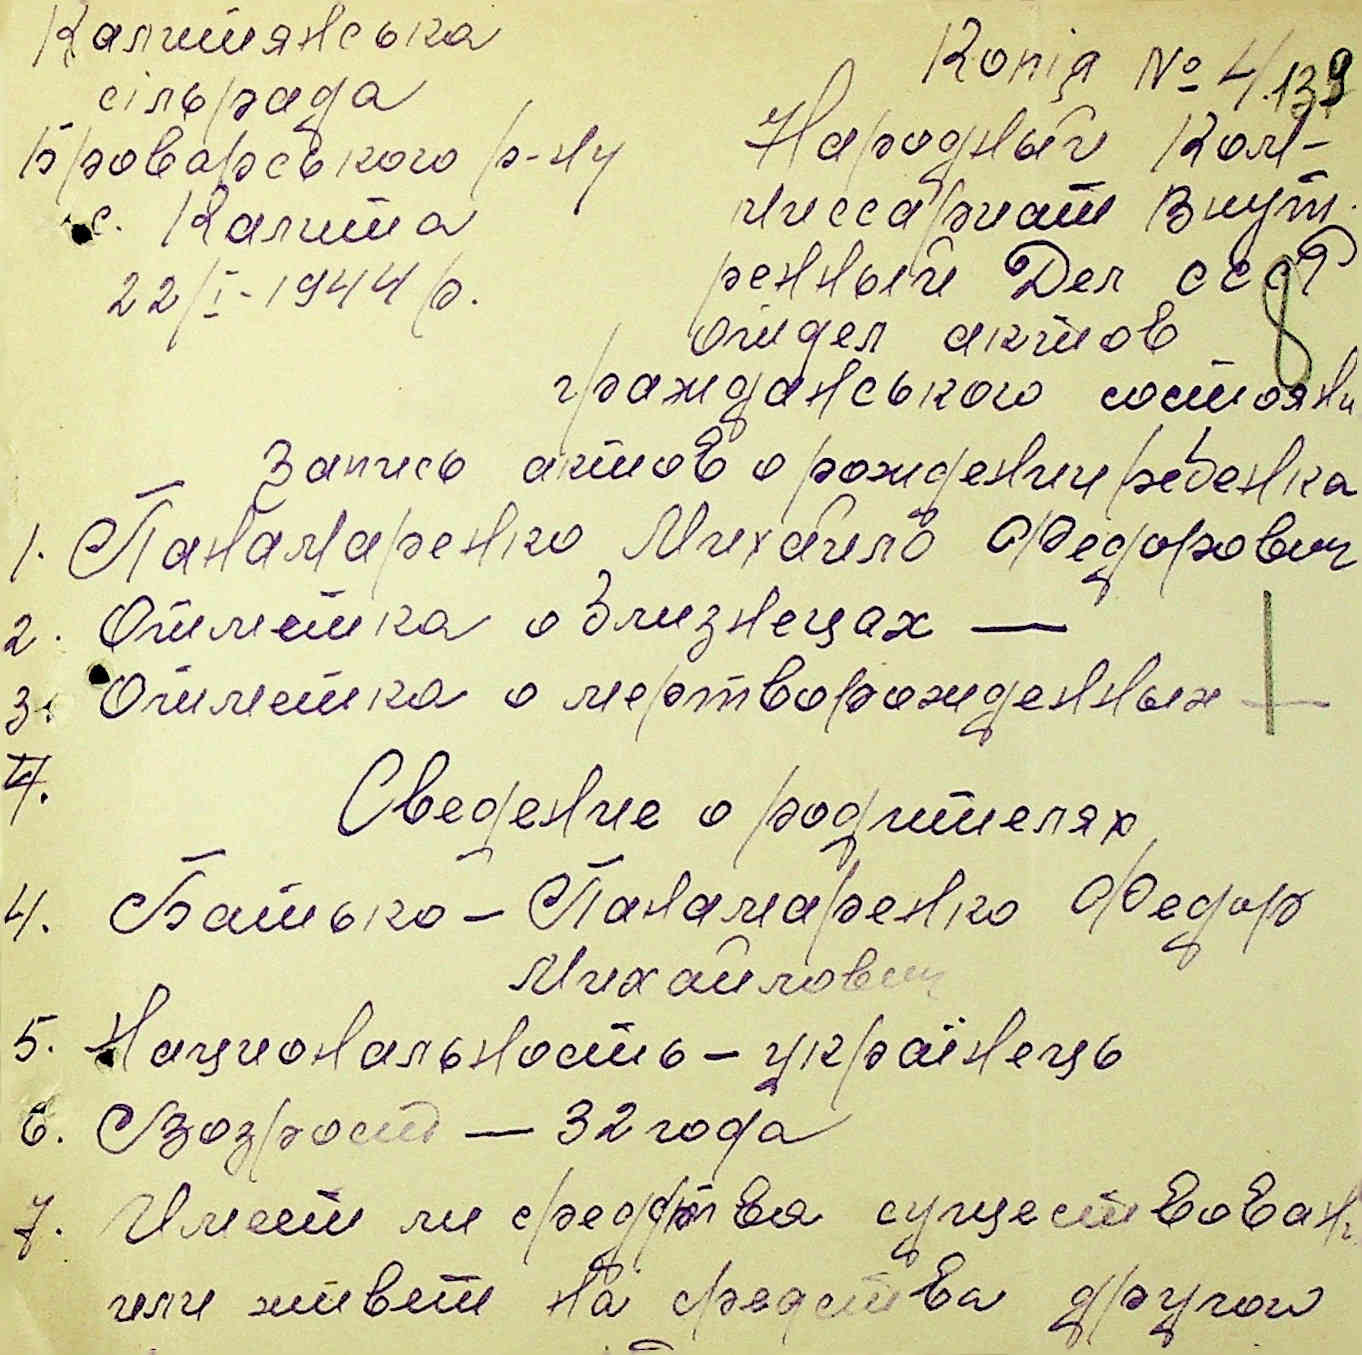 Калитянська
сільрада
Броварського р-ну
с. Калита
22/I-1944 р.
Копія № 4/139
Народный Ком-
миссариат Внут
ренный Дел СССР
отдел актов
гражданського состояни
Запись актов о рождении ребенка
1. Панамаренко Михайло Федорович
2. Отметка о близнецах —
3. Отметка о мертворожденных —
4.
Сведение о родителях
4. Батько – Панамаренко Федор
Михайлович
5. Национальность – українець
6. Возраст — 32 года
7. Имеет ли средства существован
или живет на средства другой